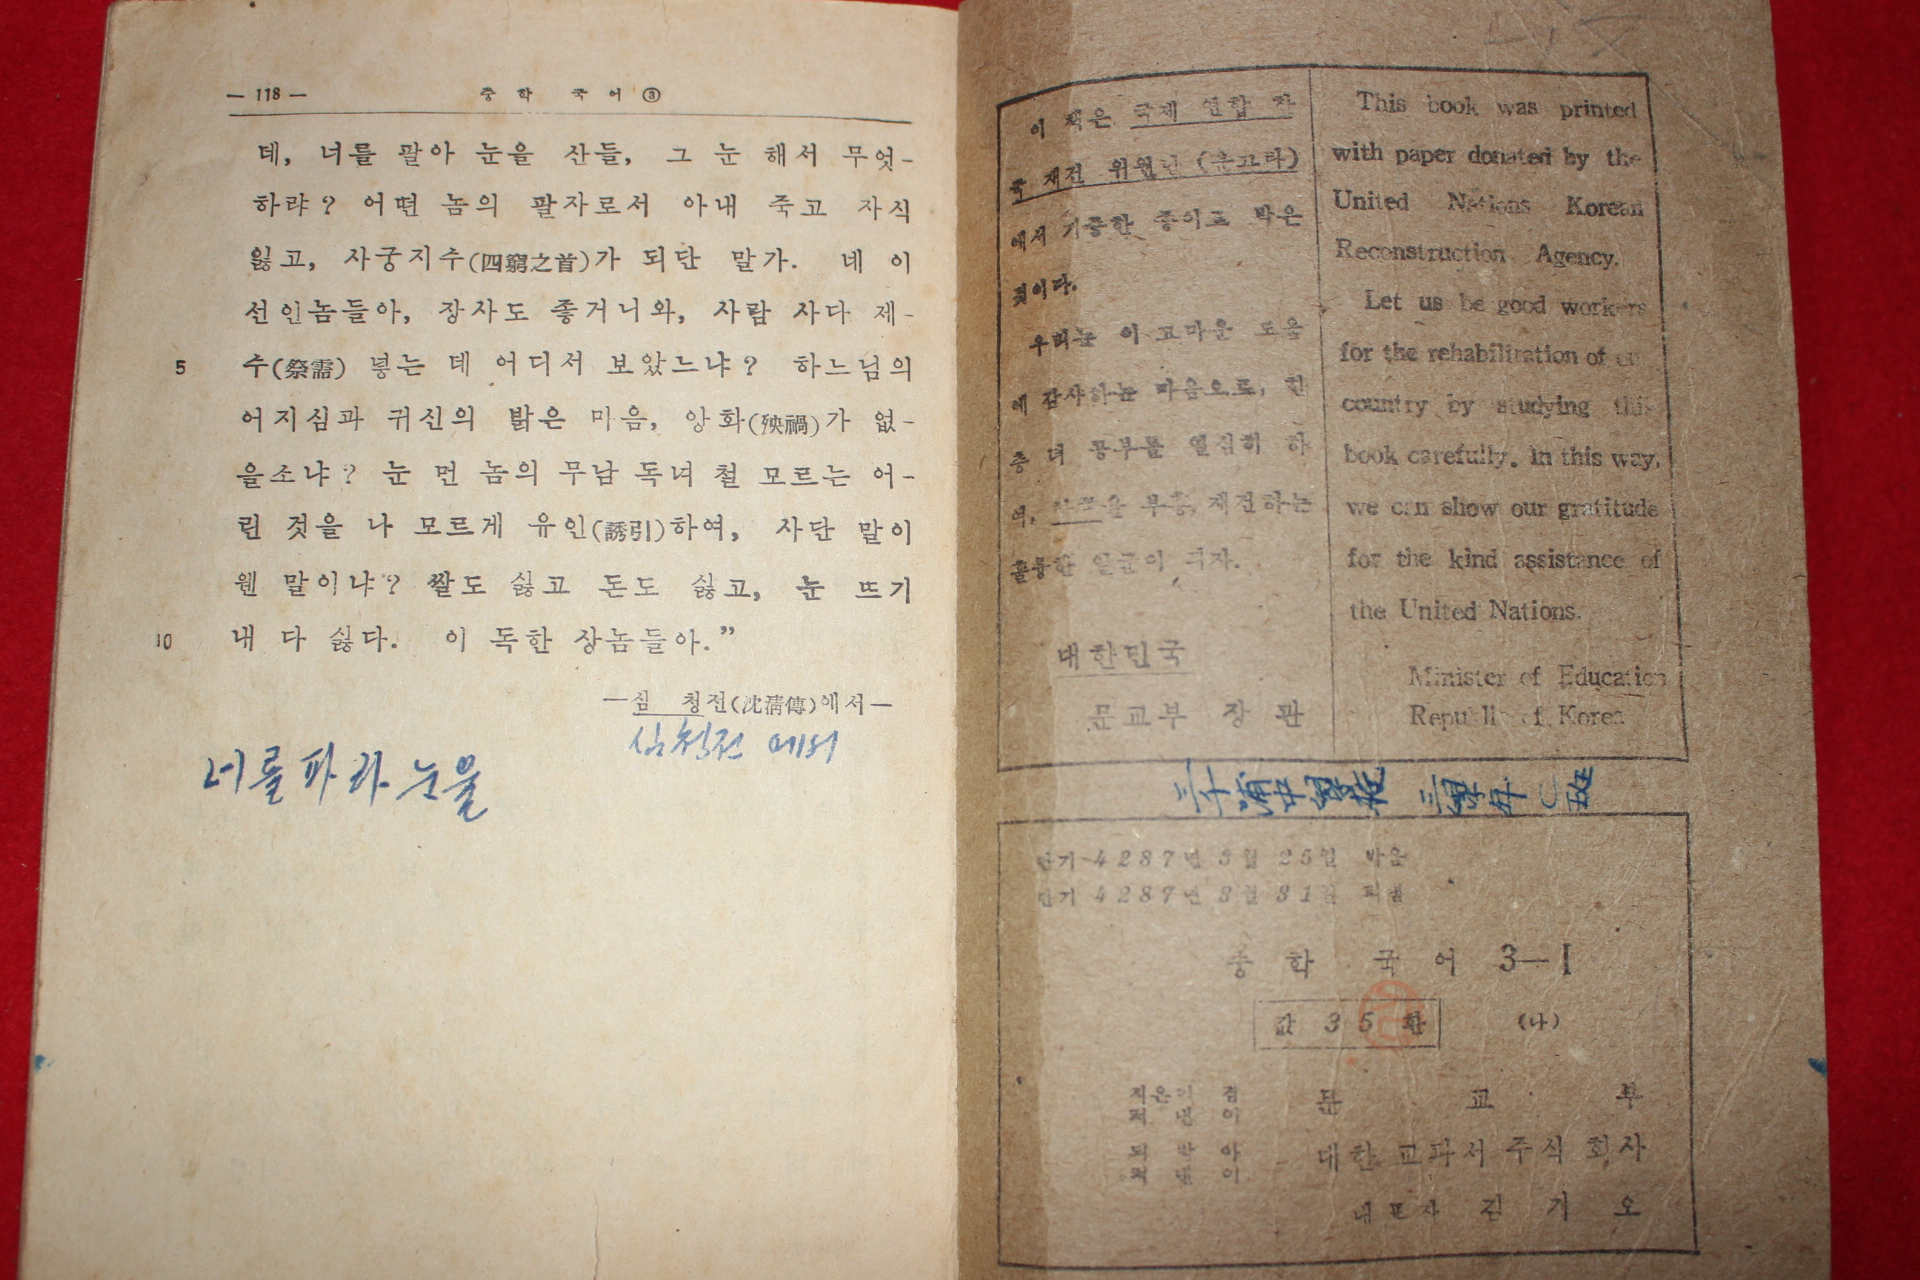 — 118 —
중학 국어 ③
데, 너를 팔아 눈을 산들, 그 눈 해서 무엇-
하랴? 어떤 놈의 팔자로서 아내 죽고 자식
잃고, 사궁지수(四窮之首)가 되단 말가. 네 이
선인놈들아, 장사도 좋거니와, 사람 사다 제-
5 수(祭需) 넣는 데 어디서 보았느냐? 하느님의
어지심과 귀신의 밝은 마음, 앙화(殃禍)가 없-
을소냐? 눈 먼 놈의 무남 독녀 철 모르는 어-
린 것을 나 모르게 유인(誘引)하여, 사단 말이
웬 말이냐? 쌀도 싫고 돈도 싫고, 눈 뜨기
10 내 다 싫다. 이 독한 상놈들아.”
—심 청전(沈淸傳)에서—
심청전 에서
너를 파라 눈을
이 책은 국제 연합 한
국 재건 위원단 (운끄라)
에서 기증한 종이로 박은
것이다.
우리는 이 고마운 도움
에 감사하는 마음으로, 한
층 더 공부를 열심히 하
여, 한국을 부흥, 재건하는
훌륭한 일군이 되자.
대한민국
문교부 장관
This book was printed
with paper donated by the
United Nations Korean
Reconstruction Agency.
Let us be good workers
for the rehabilitation of our
country by studying this
book carefully. In this way,
we can show our gratitude
for the kind assistance of
the United Nations.
Minister of Education
Republic of Korea
三年 C班
단기 4287년 3월 25일 박음
단기 4287년 3월 31일 펴냄
중학 국어 3—I
값 35환 (나)
지은이 겸
펴낸이 문교부
되박아
펴낸이 대한 교과서 주식 회사
대표자 김기오